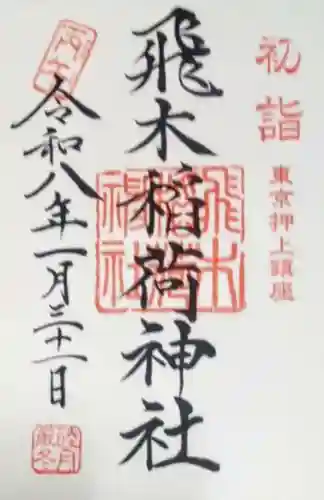 初詣
東京押上鎮座
飛木稲荷神社
飛木稲荷神社
丙午
令和八年一月三十一日
睦月